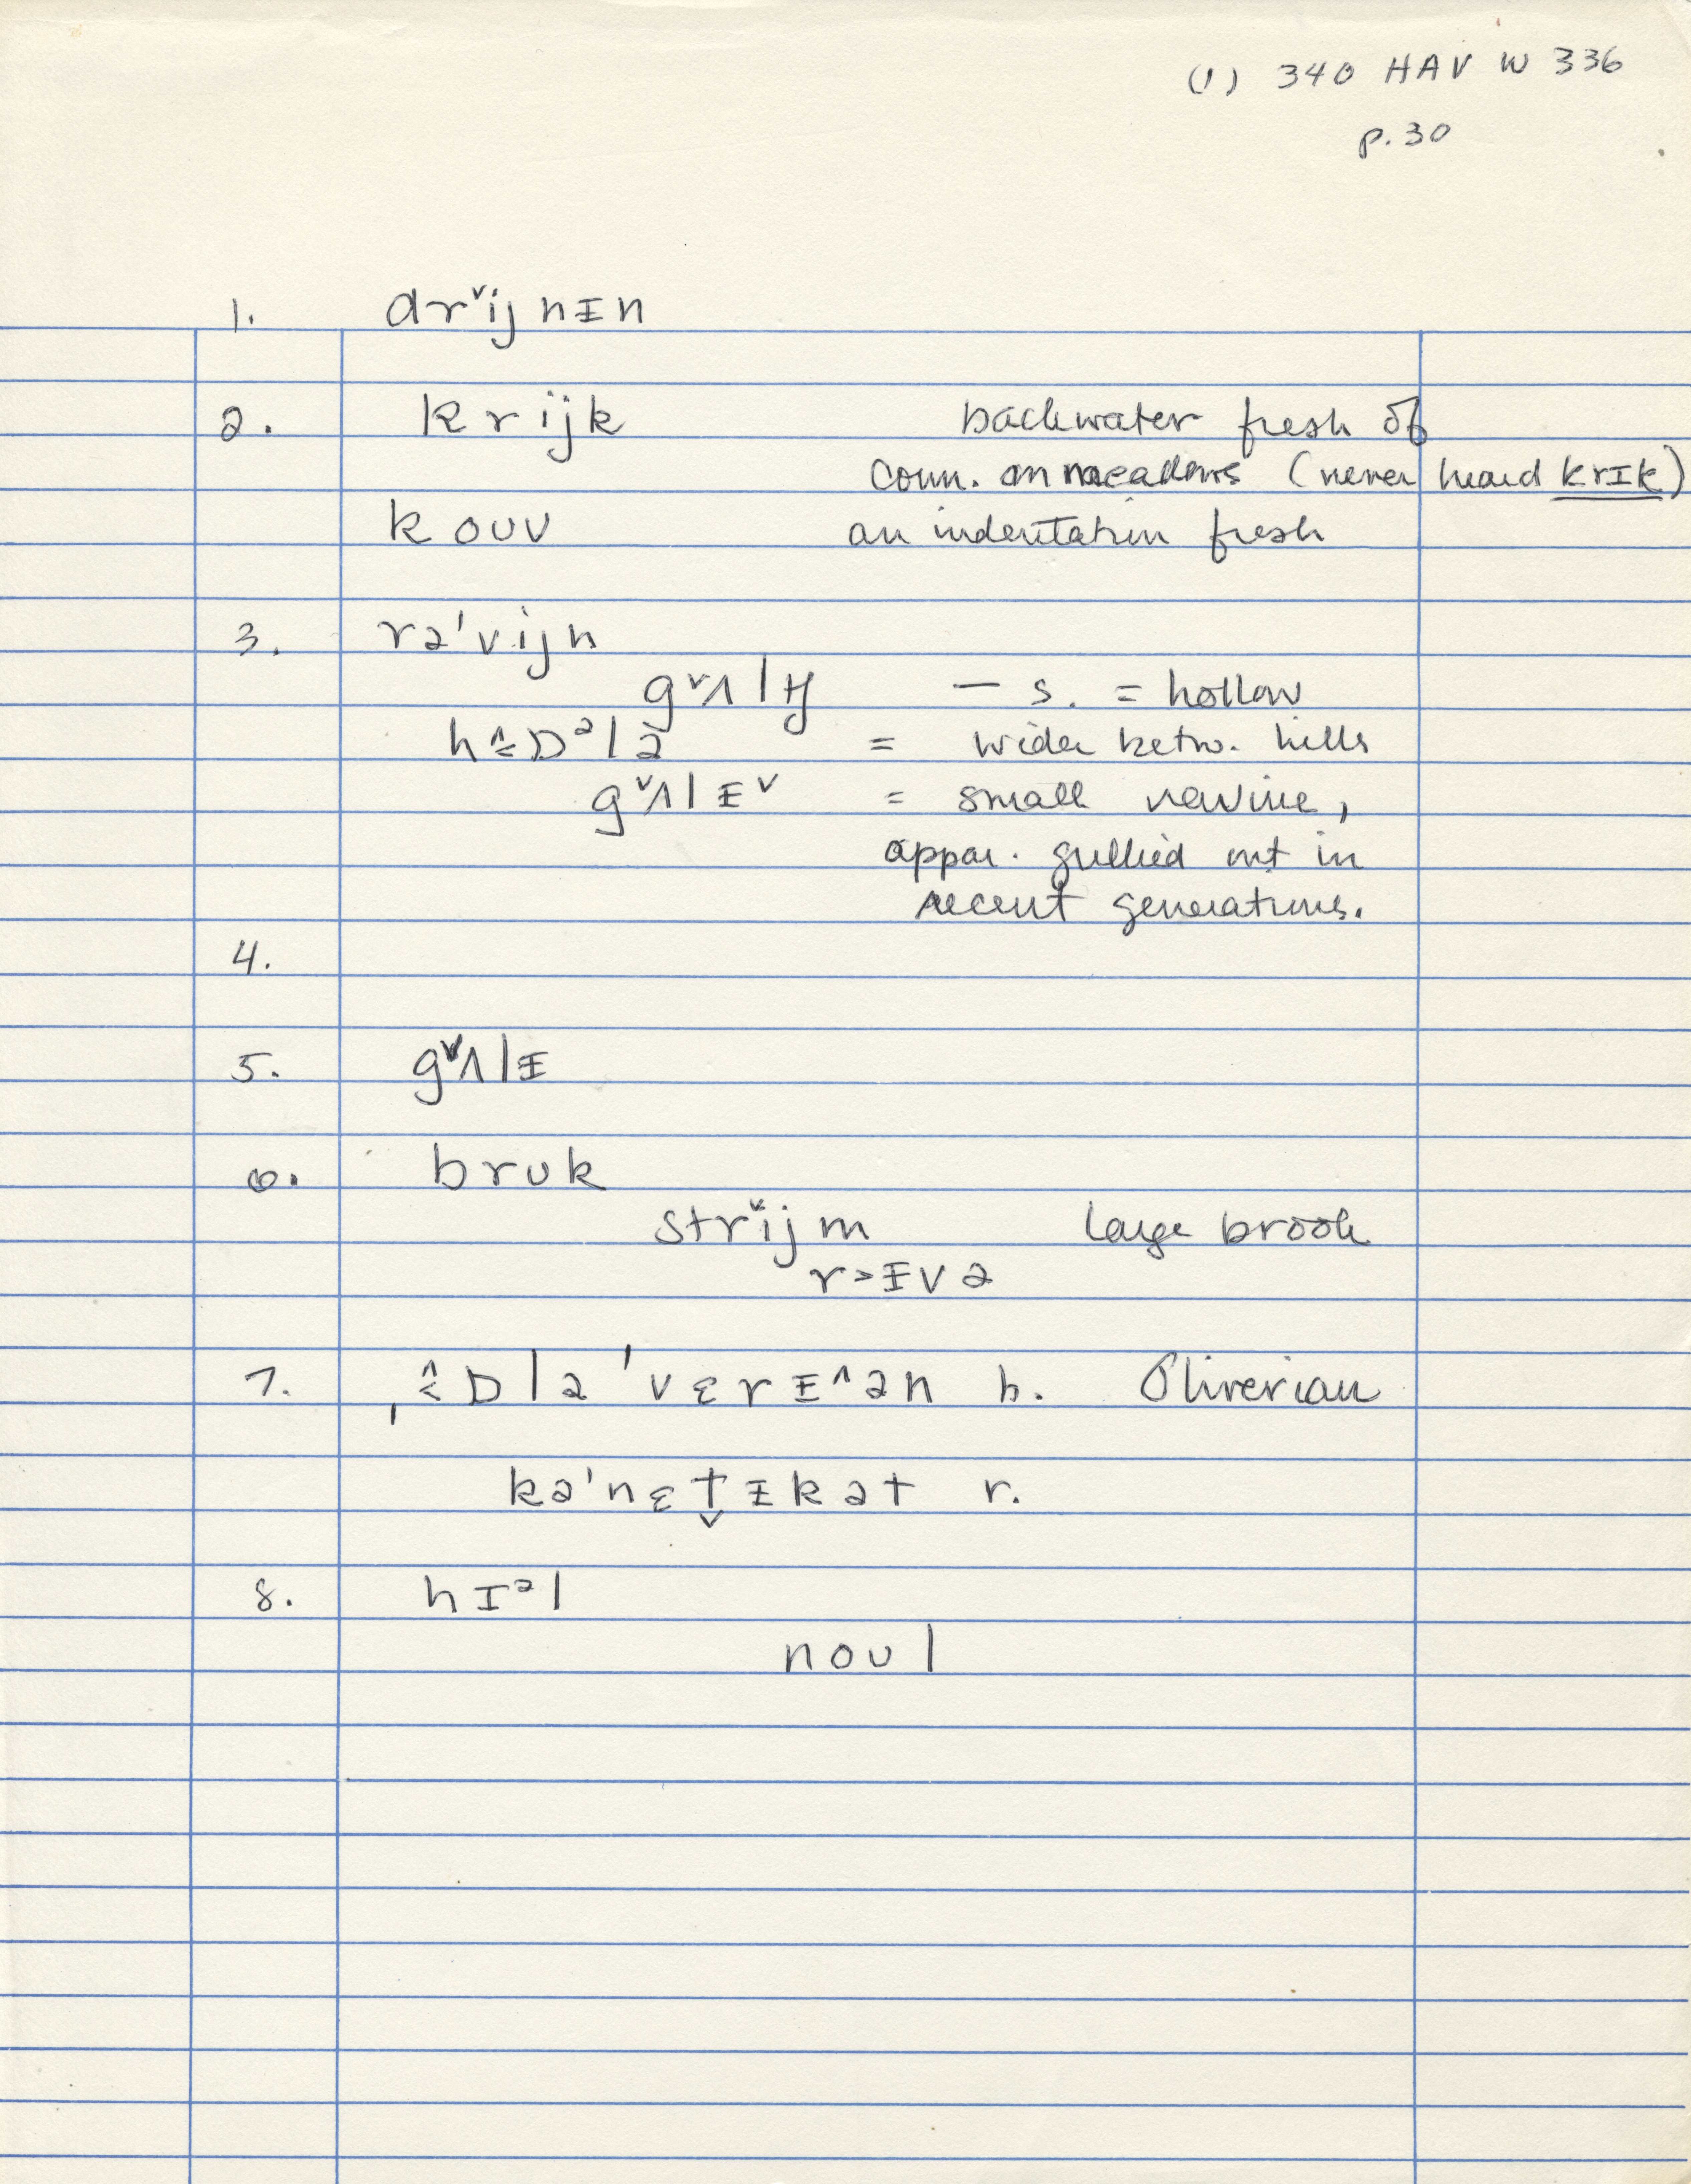 (1) 340 HAV W 336
p. 30
1. drˇijnɪn
2. krijk backwater fresh of
Conn. on meadows (never heard krɪk)
kouv an indentation fresh
3. rə'vijn
gˇʌlɪj — s. = hollow
hɒᵊlə = wider betw. hills
gˇʌlɪˇ = small ravine,
appar. gullied out in
recent generations.
4.
5. gˇʌlɪ
6. brʊk
strˇijm large brook
r>ɪvə
7. ˌɒlə'vɛrɪ^ən b. Oliverian
kə'nɛt̬ɪkət r.
8. hɪᵊl
noʊl